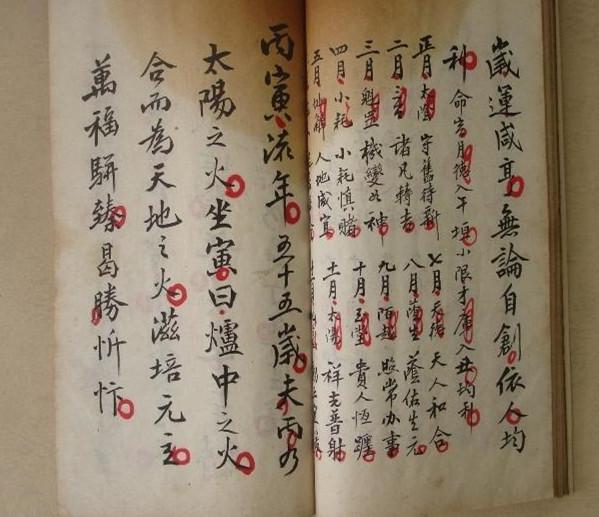 歲運咸亨無論自創依人均
利命宮月德入午垣小限才庫入丑均利
正月太陰守舊待新
二月 諸凡轉吉
三月 機變如神
四月小耗小耗慎賭
五月 人地咸宜
七月天德天人和合
八月 蔭佑生元
九月陌越照常办事
十月玉堂貴人恆躔
十一月太陽祥光普射
丙寅流年五十五歲夫丙乃
太陽之火坐寅曰爐中之火
合而為天地之火滋培元主
萬福駢臻曷勝忻忭